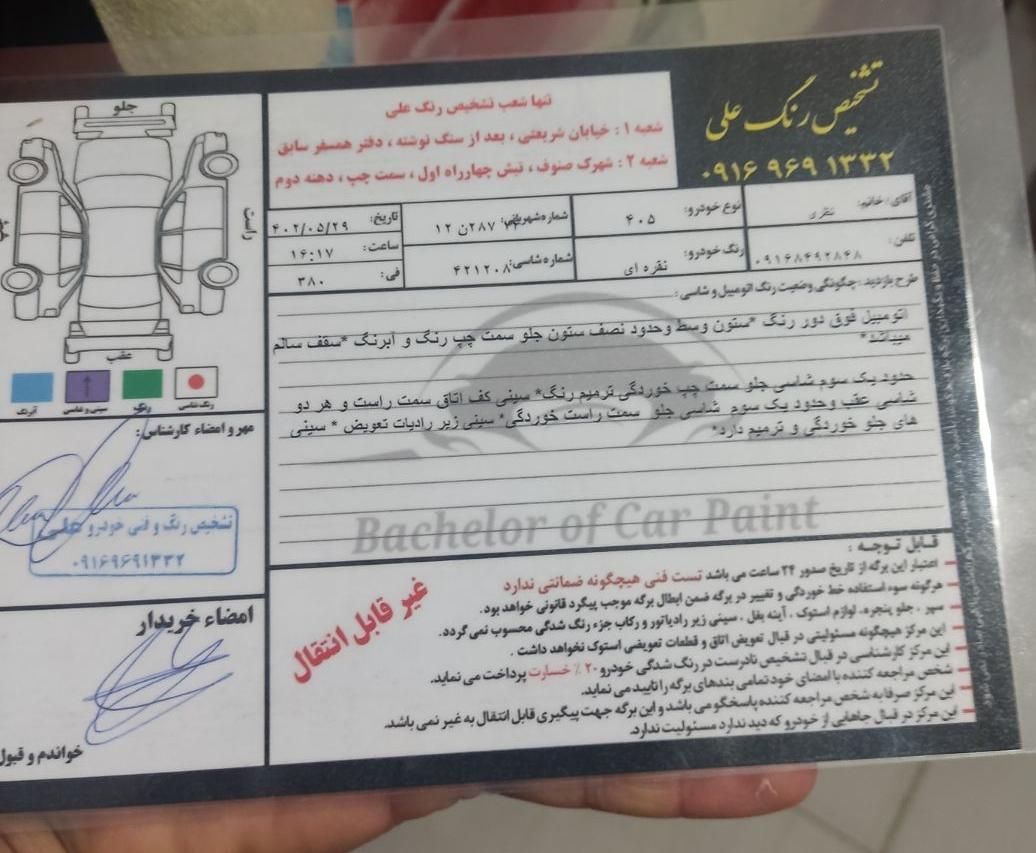 تشخیص رنگ علی
۰۹۱۶ ۹۶۹ ۱۳۳۲
تنها شعب تشخیص رنگ علی
شعبه ۱ : خیابان شریعتی ، بعد از سنگ نوشته ، دفتر همسفر سابق
شعبه ۲ : شهرک صنوف ، نبش چهارراه اول ، سمت چپ ، دهنه دوم
آقای/خانم: نظری
نوع خودرو: ۴۰۵
تاریخ: ۴۰۲/۰۵/۲۹
تلفن: ۰۹۱۶۸۴۹۲۸۴۸
رنگ خودرو: نقره ای
شماره شاسی: ۴۲۱۲۰۸
ساعت: ۱۶:۱۷
فی: ۳۸۰
طرح بازدید : چگونگی وضعیت رنگ اتومبیل و شاسی :
اتومبیل فوق دور رنگ *ستون وسط وحدود نصف ستون جلو سمت چپ رنگ و آبرنگ *سقف سالم
میباشد*
حدود یک سوم شاسی جلو سمت چپ خوردگی ترمیم رنگ* سینی کف اتاق سمت راست و هر دو
شاسی عقب وحدود یک سوم شاسی جلو سمت راست خوردگی* سینی زیر رادیات تعویض * سینی
های جلو خوردگی و ترمیم دارد*
Bachelor of Car Paint
جلو
راست
عقب
رنگ شاسی
رنگ
سینی و شاسی
آبرنگ
مهر و امضاء کارشناس:
تشخیص رنگ و فنی خودرو علی
۰۹۱۶۹۶۹۱۳۳۲
امضاء خریدار
خواندم و قبول
غیر قابل انتقال
قابل توجه :
اعتبار این برگه از تاریخ صدور ۲۴ ساعت می باشد تست فنی هیچگونه ضمانتی ندارد
هرگونه سوء استفاده خط خوردگی و تغییر در برگه ضمن ابطال برگه موجب پیگرد قانونی خواهد بود.
سپر ، جلو پنجره، لوازم استوک ، آینه بغل ، سینی زیر رادیاتور و رکاب جزء رنگ شدگی محسوب نمی گردد.
این مرکز هیچگونه مسئولیتی در قبال تعویض اتاق و قطعات تعویضی استوک نخواهد داشت .
این مرکز کارشناسی در قبال تشخیص نادرست در رنگ شدگی خودرو ۲۰٪ خسارت پرداخت می نماید.
شخص مراجعه کننده با امضای خود تمامی بندهای برگه را تایید می نماید.
این مرکز صرفا به شخص مراجعه کننده پاسخگو می باشد و این برگه جهت پیگیری قابل انتقال به غیر نمی باشد.
این مرکز در قبال جاهایی از خودرو که دید ندارد مسئولیت ندارد.